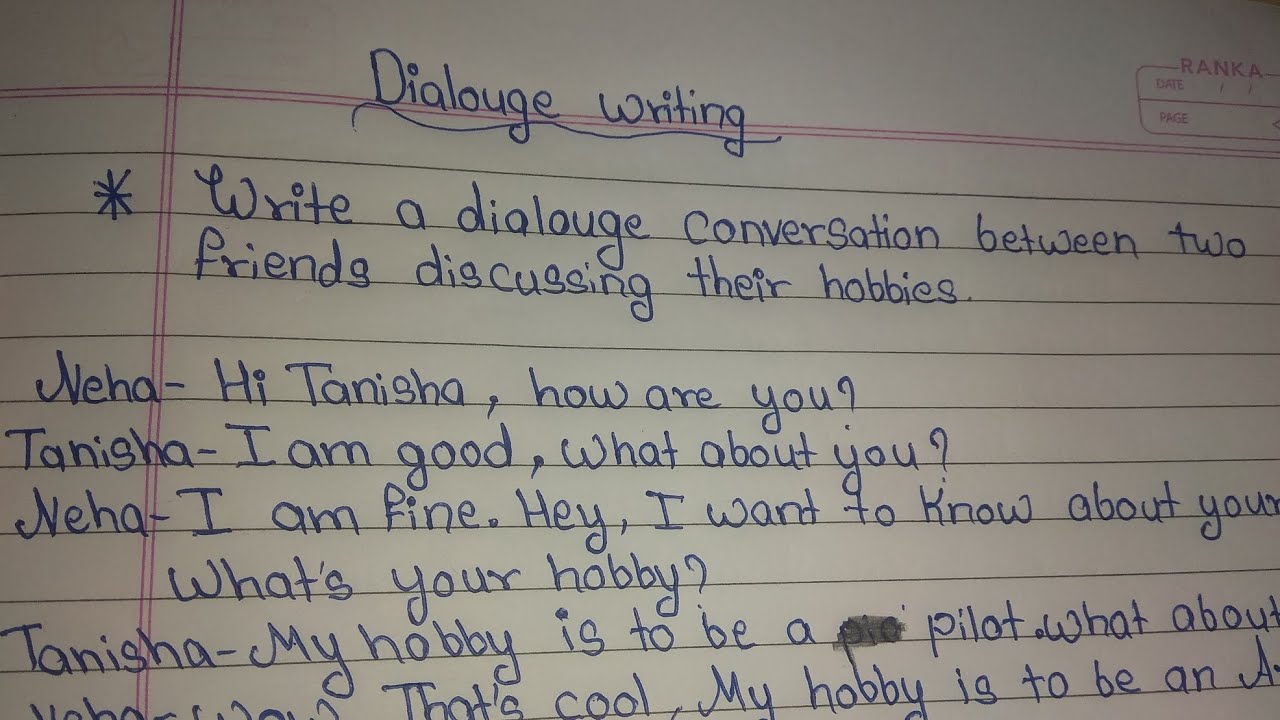 RANKA
DATE / /
PAGE
Dialouge writing
* Write a dialouge conversation between two
friends discussing their hobbies.
Neha- Hi Tanisha, how are you?
Tanisha- I am good, what about you?
Neha- I am fine. Hey, I want to know about your
What's your hobby?
Tanisha- My hobby is to be a pilot. what about
Neha- That's cool. My hobby is to be an